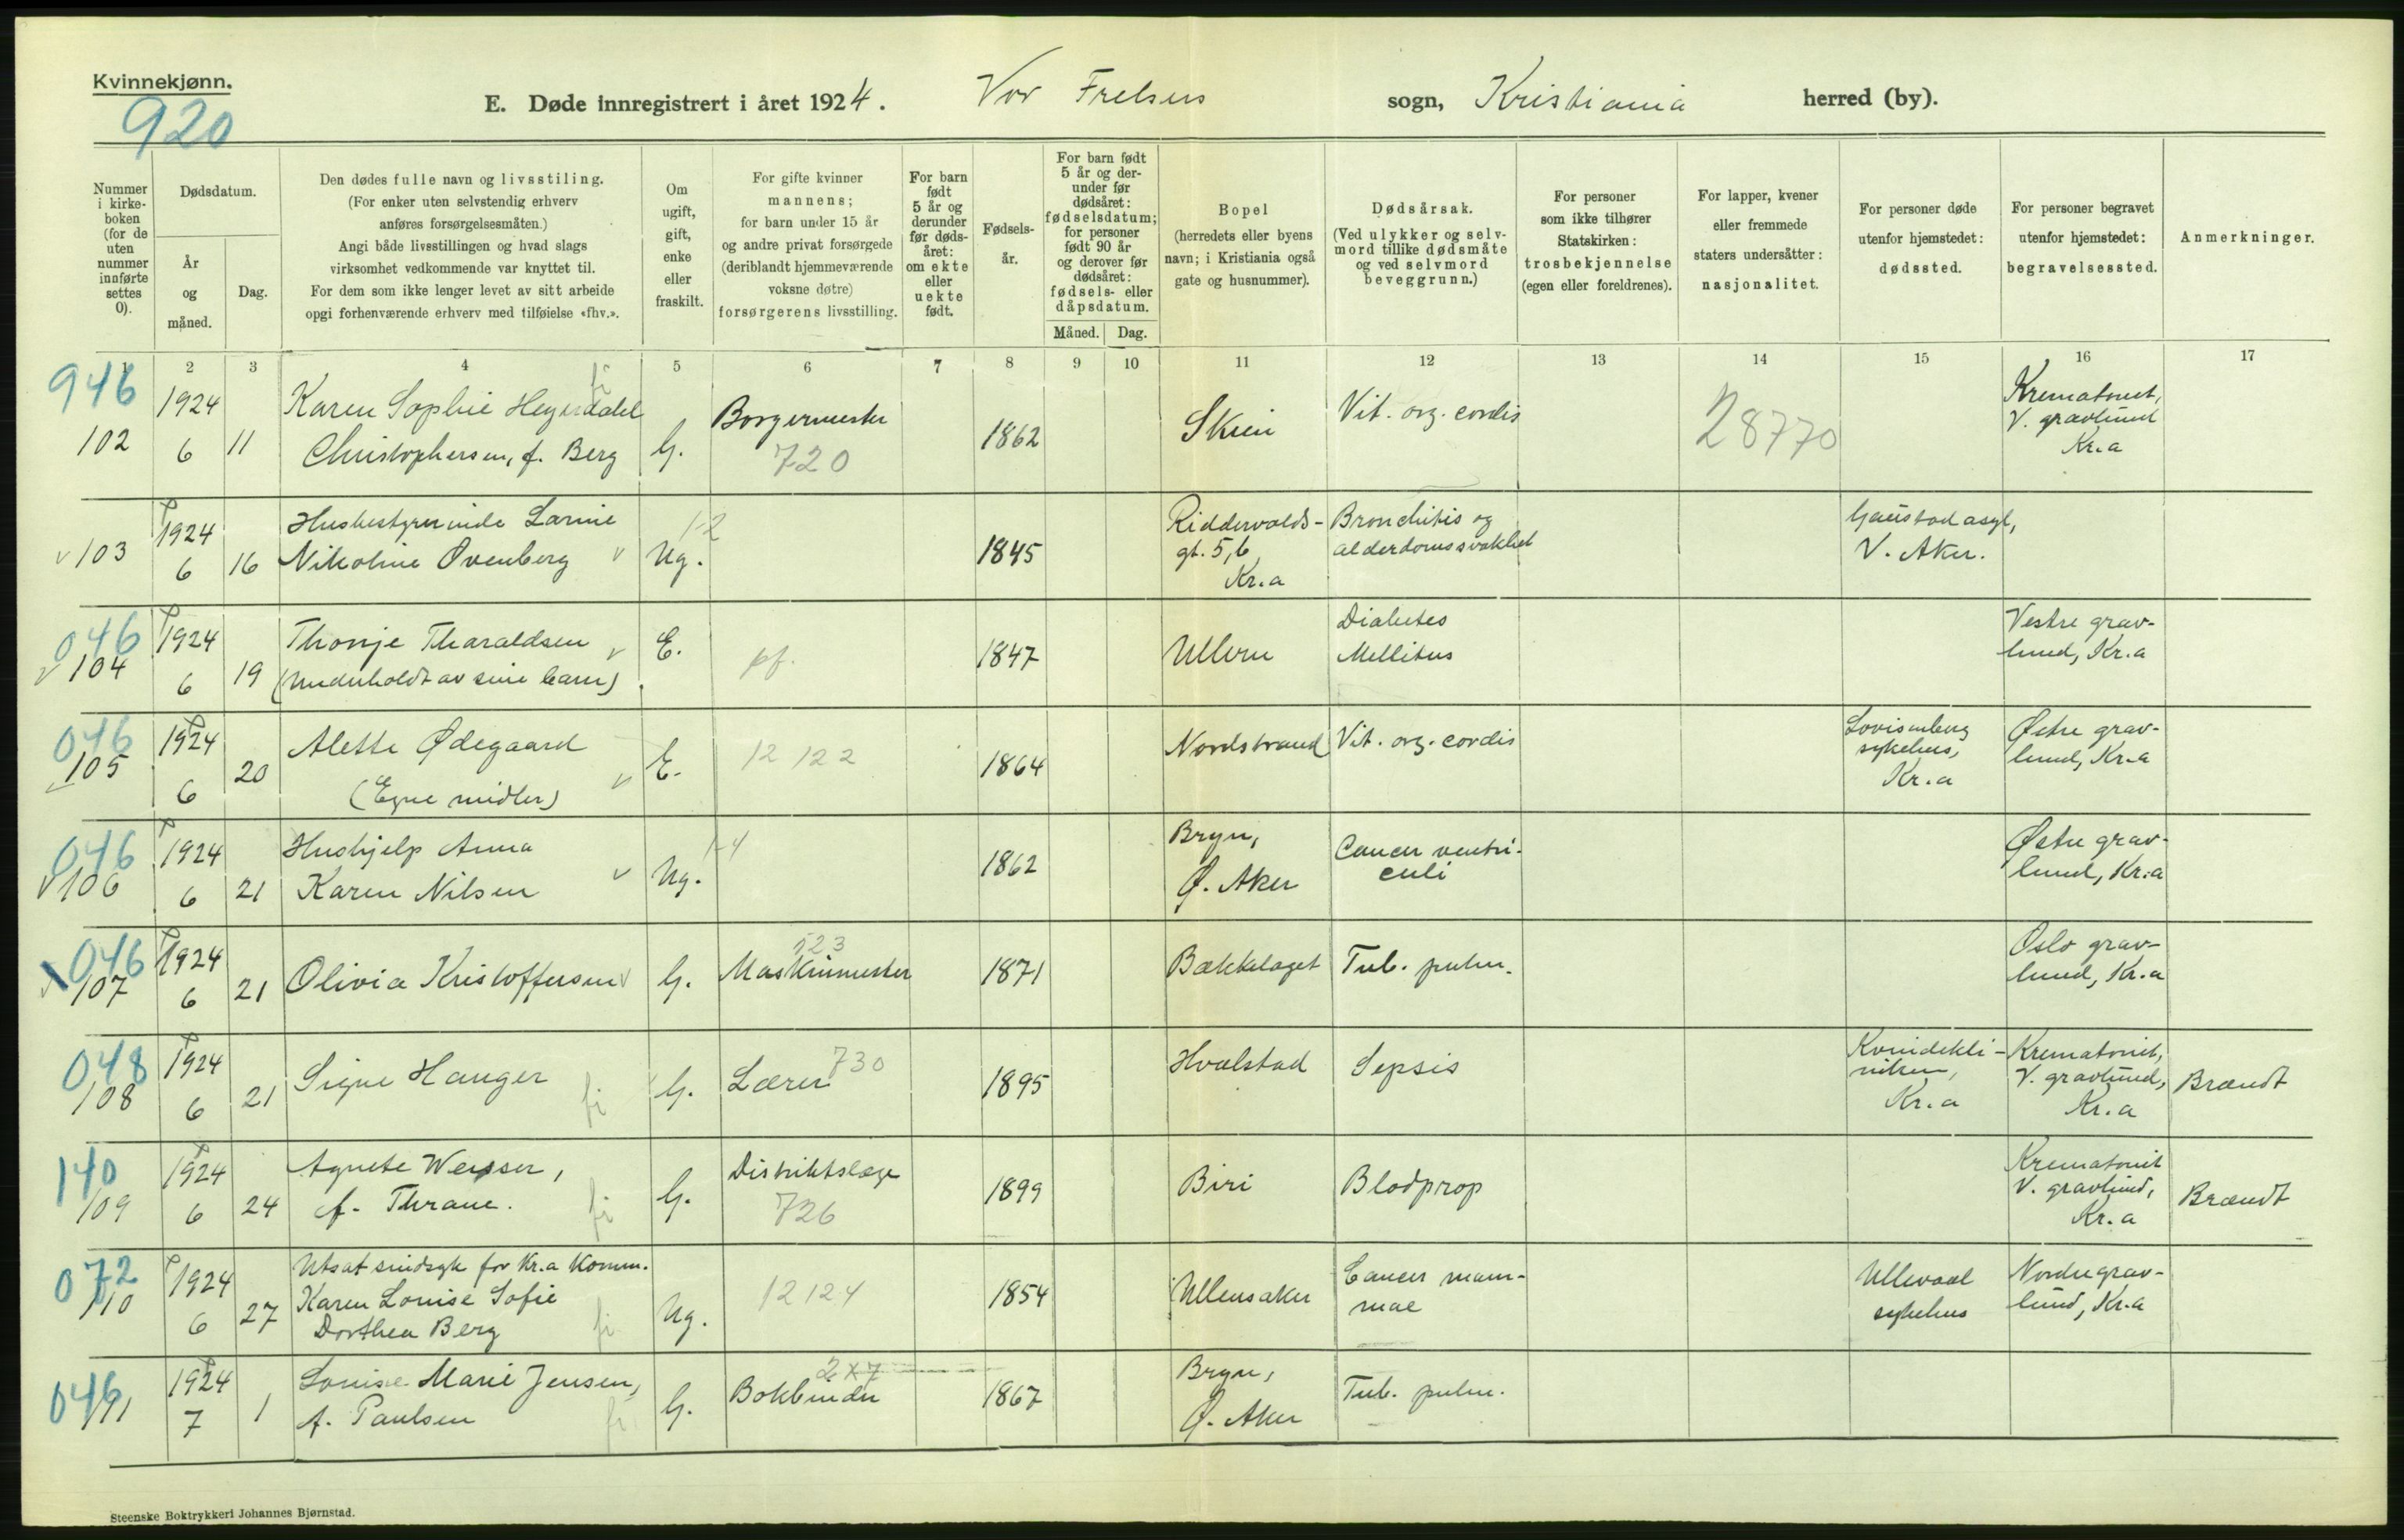 Kvinnekjønn.
920
E. Døde innregistrert i året 1924. Vor Frelsers sogn, Kristiania herred (by).
Nummer i kirke-boken (for de uten nummer innførte settes 0).
Dødsdatum.
År og måned.
Dag.
Den dødes fulle navn og livsstiling.
(For enker uten selvstendig erhverv
anføres forsørgelsesmåten.)
Angi både livsstillingen og hvad slags
virksomhet vedkommende var knyttet til.
For dem som ikke lenger levet av sitt arbeide
opgi forhenværende erhverv med tilføielse «fhv.».
Om ugift, gift, enke eller fraskilt.
For gifte kvinner
mannens;
for barn under 15 år
og andre privat forsørgede
(deriblandt hjemmeværende
voksne døtre)
forsørgerens livsstilling.
For barn født 5 år og derunder før døds-året: om ekte eller uekte født.
Fødsels-år.
For barn født 5 år og der-under før dødsåret: fødselsdatum; for personer født 90 år og derover før dødsåret: fødsels- eller dåpsdatum.
Måned. Dag.
Bopel
(herredets eller byens
navn; i Kristiania også
gate og husnummer).
Dødsårsak.
(Ved ulykker og selv-
mord tillike dødsmåte
og ved selvmord
beveggrunn.)
For personer
som ikke tilhører
Statskirken:
trosbekjennelse
(egen eller foreldrenes).
For lapper, kvener
eller fremmede
staters undersåtter:
nasjonalitet.
For personer døde
utenfor hjemstedet:
dødssted.
For personer begravet
utenfor hjemstedet:
begravelsessted.
Anmerkninger.
1 2 3 4 5 6 7 8 9 10 11 12 13 14 15 16 17
946
102 1924 6 11 Karen Sophie Heyerdahl
Christophersen, f. Berg G. Borgermester 720 1862 Skien Vit. org. cordis 28770 Krematoriet, V. gravlund Kr.a
103 1924 6 16 Husbestyrerinde
Nikoline Ovenberg Ug. 1-2 1845 Riddervolds-gt. 5, 6 Kr.a Bronchitis og alderdomssvakhet Gaustad asyl, V. Aker.
046
104 1924 6 19 Thonje Tharaldsen
(Underholdt av sine barn) E. pf. 1847 Ullern Diabetes Mellitus Vestre grav-lund, Kr.a
046
105 1924 6 20 Alette Ødegaard
(Egne midler) E. 12 122 1864 Nordstrand Vit. org. cordis Lovisenberg sykehus, Kr.a Østre grav-lund, Kr.a
046
106 1924 6 21 Hushjelp Anna
Karen Nilsen Ug. 1-4 1862 Bryn, Ø. Aker Cancer ventri-culi Østre grav-lund, Kr.a
046
107 1924 6 21 Olivia Kristoffersen G. 523 Maskinmester 1871 Bækkelaget Tub. pulm. Oslo grav-lund, Kr.a
048
108 1924 6 21 Signe Hauger G. Lærer 730 1895 Hvalstad Sepsis Kvindekli-niken, Kr.a Krematoriet, V. gravlund, Kr.a Brændt
140
109 1924 6 24 Agnete Weisser,
f. Thrane. G. Distriktslæge 726 1899 Biri Blodprop Krematoriet V. gravlund, Kr.a Brændt
072
110 1924 6 27 Utsat sindsyk for Kr.a Komm.
Karen Louise Sofie
Dorthea Berg Ug. 12 124 1854 Ullensaker Cancer mam-mae Ullevaal sykehus Nordre grav-lund, Kr.a
046
111 1924 7 1 Louise Marie Jensen,
f. Paulsen G. 2x7 Bokbinder 1867 Bryn, Ø. Aker Tub. pulm.
Steenske Boktrykkeri Johannes Bjørnstad.